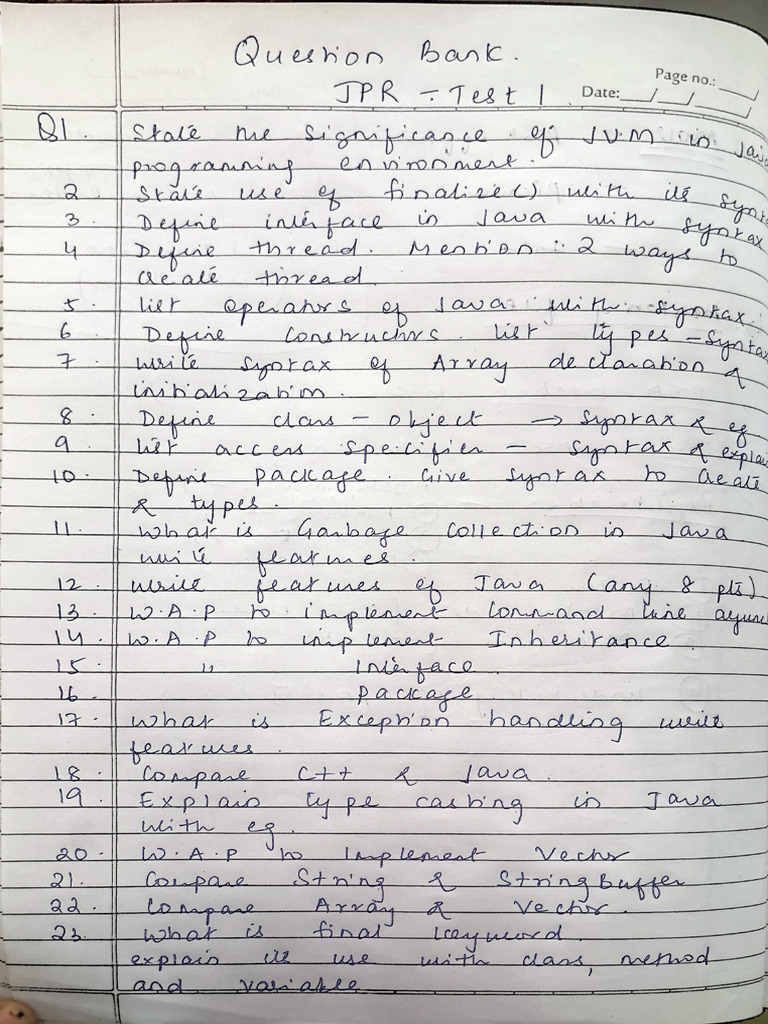 Question Bank.
Page no.: ___
JPR - Test 1
Date: __/__/__
Q1. State the significance of JVM in Java
programming environment.
2 State use of finalize() with its syntax
3. Define interface in Java with syntax
4 Define thread. Mention 2 ways to
create thread.
5. List operators of Java with syntax.
6 Define Constructors. List types - Syntax
7 Write syntax of Array declaration &
initialization.
8 Define class - object → Syntax & eg
9. List access specifier - syntax & explain
10. Define package. Give syntax to create
& types.
11. What is Garbage Collection in Java
write features.
12 Write features of Java (any 8 pts)
13. W.A.P to implement Command line
14. W.A.P to implement Inheritance.
15 " Interface.
16 Package.
17. What is Exception handling write
features.
18. Compare C++ & Java.
19. Explain type casting in Java
with eg.
20. W.A.P to Implement Vector
21. Compare String & StringBuffer
22. Compare Array & Vector.
23. What is final keyword.
explain its use with class, method
and variable